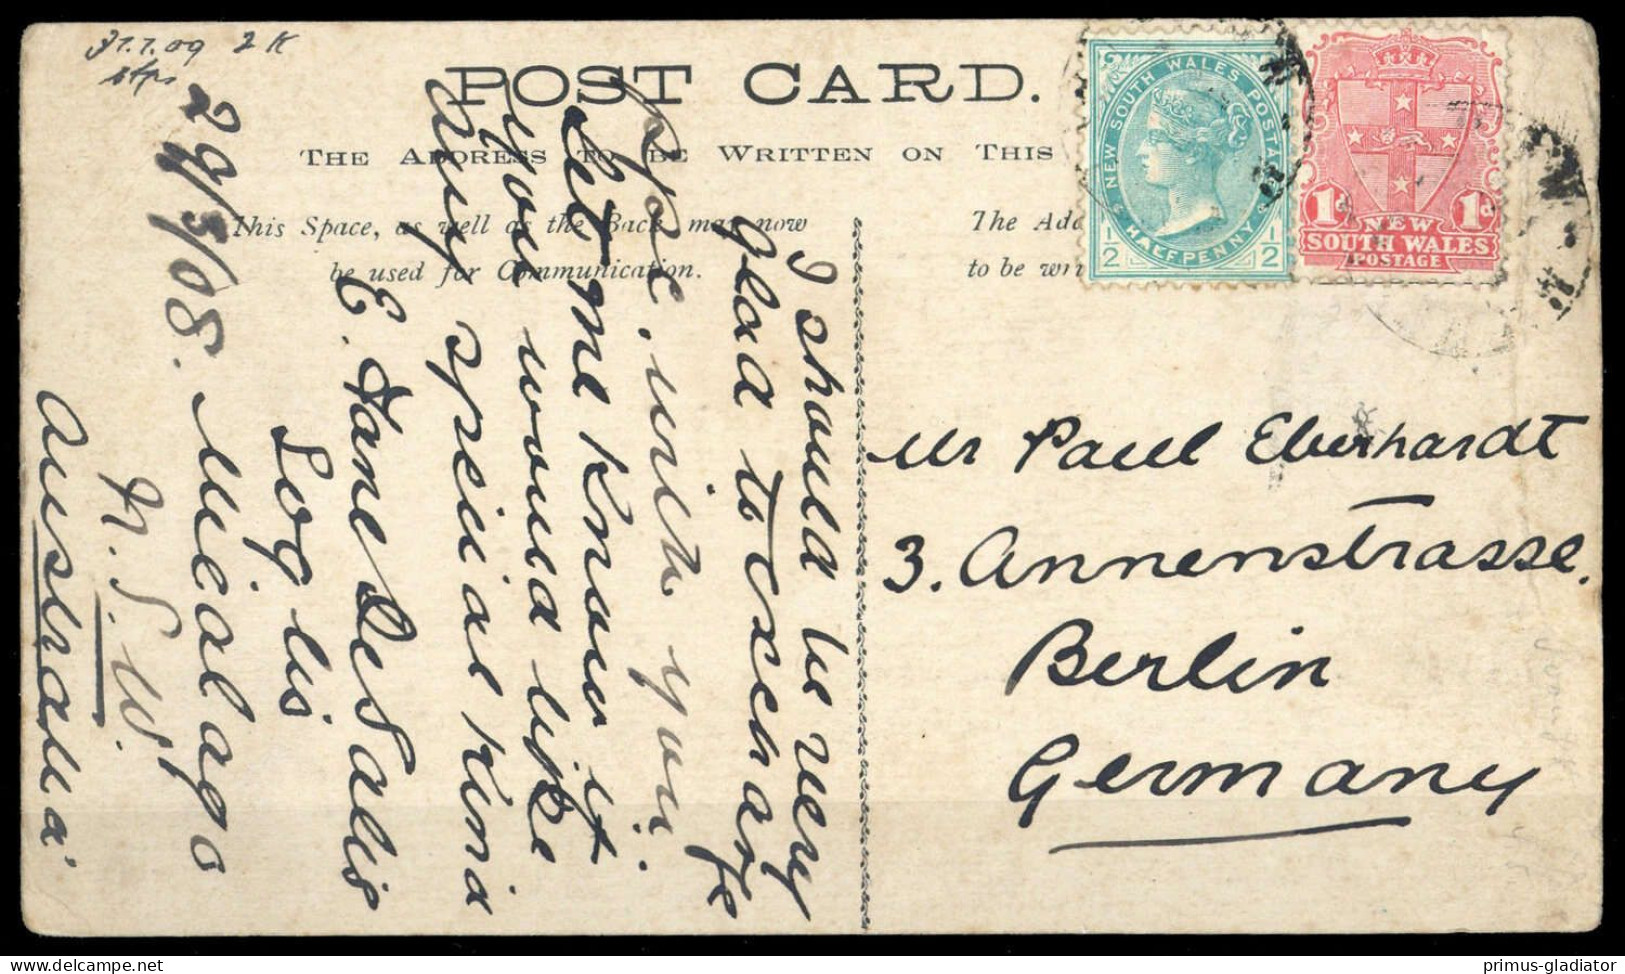 31.7.09 2 K
POST CARD.
THE ADDRESS TO BE WRITTEN ON THIS
This Space, as well as the Back may now
be used for Communication.
The Add
to be wri
NEW SOUTH WALES POSTA
HALFPENNY
1/2
1/2
1d
1d
NEW
SOUTH WALES
POSTAGE
29/5/08. Micalago
N.S.W.
Australia
I should be very
glad to exchange
with you.
Let me know if
you would like
any special kind
E. Fane De Salis
Mr Paul Eberhardt
3. Annenstrasse.
Berlin
Germany
delcampe.net
primus-gladiator